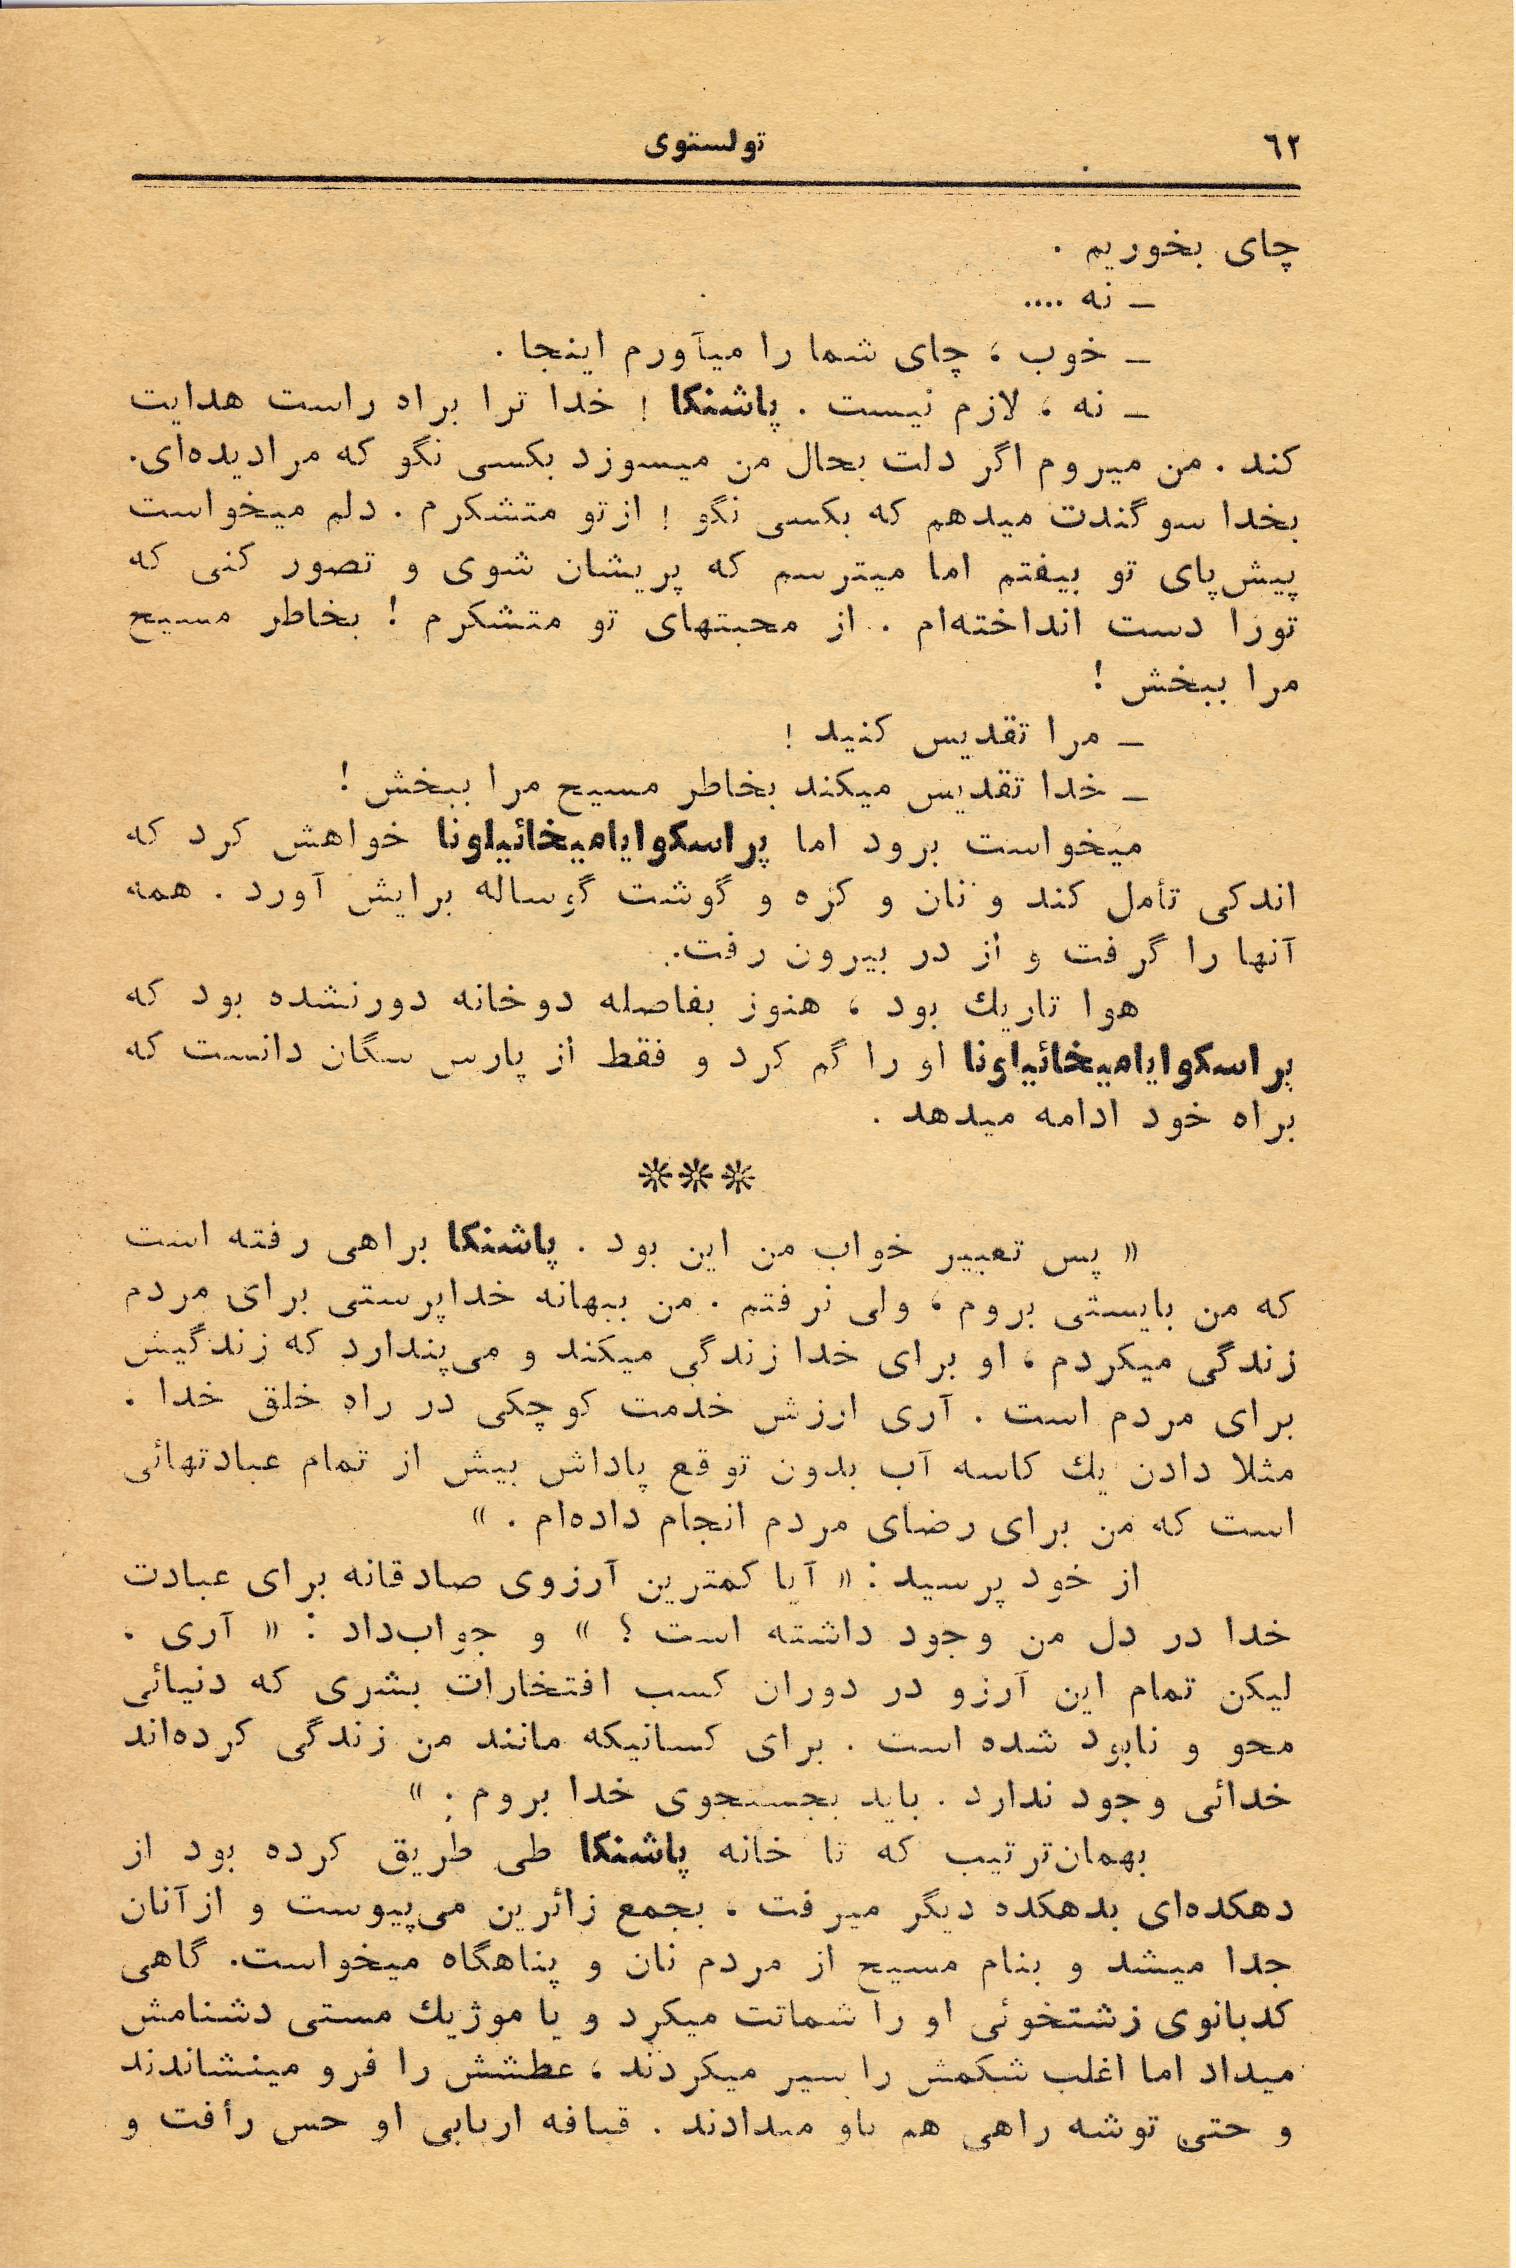 ٦٢
تولستوی
چای بخوریم .
ـ نه ....
ـ خوب ، چای شما را میآورم اینجا .
ـ نه ، لازم نیست . پاشنکا ! خدا ترا براه راست هدایت
کند . من میروم اگر دلت بحال من میسوزد بکسی نگو که مرادیده‌ای.
بخدا سوگندت میدهم که بکسی نگو ! ازتو متشکرم . دلم میخواست
پیش‌پای تو بیفتم اما میترسم که پریشان شوی و تصور کنی که
تورا دست انداخته‌ام . از محبتهای تو متشکرم ! بخاطر مسیح
مرا ببخش !
ـ مرا تقدیس کنید !
ـ خدا تقدیس میکند بخاطر مسیح مرا ببخش !
میخواست برود اما پراسکوایامیخائیلونا خواهش کرد که
اندکی تأمل کند و نان و کره و گوشت گوساله برایش آورد . همه
آنها را گرفت و از در بیرون رفت.
هوا تاریك بود ، هنوز بفاصله دوخانه دورنشده بود که
پراسکوایامیخائیلونا او را گم کرد و فقط از پارس سگان دانست که
براه خود ادامه میدهد .
❊❊❊
« پس تعبیر خواب من این بود . پاشنکا براهی رفته است
که من بایستی بروم ، ولی نرفتم . من ببهانه خداپرستی برای مردم
زندگی میکردم ، او برای خدا زندگی میکند و می‌پندارد که زندگیش
برای مردم است . آری ارزش خدمت کوچکی در راه خلق خدا .
مثلا دادن یك کاسه آب بدون توقع پاداش بیش از تمام عبادتهائی
است که من برای رضای مردم انجام داده‌ام . »
از خود پرسید : « آیا کمترین آرزوی صادقانه برای عبادت
خدا در دل من وجود داشته است ؟ » و جواب‌داد : « آری .
لیکن تمام این آرزو در دوران کسب افتخارات بشری که دنیائی
محو و نابود شده است . برای کسانیکه مانند من زندگی کرده‌اند
خدائی وجود ندارد . باید بجستجوی خدا بروم . »
بهمان‌ترتیب که تا خانه پاشنکا طی طریق کرده بود از
دهکده‌ای بدهکده دیگر میرفت ، بجمع زائرین می‌پیوست و ازآنان
جدا میشد و بنام مسیح از مردم نان و پناهگاه میخواست. گاهی
کدبانوی زشتخوئی او را شماتت میکرد و یا موژیك مستی دشنامش
میداد اما اغلب شکمش را سیر میکردند ، عطشش را فرو مینشاندند
و حتی توشه راهی هم باو میدادند . قیافه اربابی او حس رأفت و